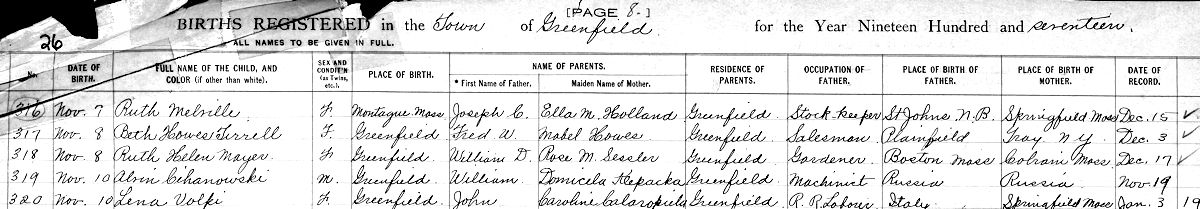 [PAGE 8.]
BIRTHS REGISTERED in the Town of Greenfield. for the Year Nineteen Hundred and seventeen.
26
ALL NAMES TO BE GIVEN IN FULL.
No. DATE OF BIRTH. FULL NAME OF THE CHILD, AND COLOR (if other than white). SEX AND CONDIT'N (as Twins, etc.). PLACE OF BIRTH. NAME OF PARENTS. * First Name of Father. Maiden Name of Mother. RESIDENCE OF PARENTS. OCCUPATION OF FATHER. PLACE OF BIRTH OF FATHER. PLACE OF BIRTH OF MOTHER. DATE OF RECORD.
316 Nov. 7 Ruth Melville F. Montague Mass Joseph C. Ella M. Holland Greenfield Stock Keeper St Johns N.B. Springfield Mass Dec. 15 ✓
317 Nov. 8 Beth Howes Tirrell F. Greenfield Fred W. Mabel Howes Greenfield Salesman Plainfield Troy N.Y. Dec. 3 ✓
318 Nov. 8 Ruth Helen Mayer F. Greenfield William D. Rose M. Sessler Greenfield Gardener Boston Mass Colrain Mass Dec. 17 ✓
319 Nov. 10 Alvin Cihanowski M. Greenfield William Domicela Greenfield Machinist Russia Russia Nov 19
320 Nov. 10 Lena Volpe F. Greenfield John Caroline Greenfield R. R. Labour Italy Springfield Mass Jan. 3 19